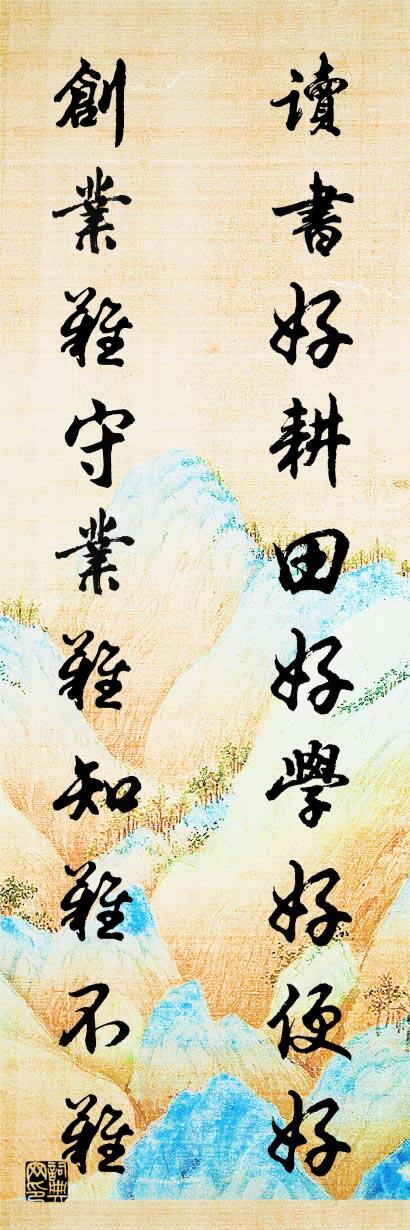 讀書好耕田好學好便好
創業難守業難知難不難
詞典網印